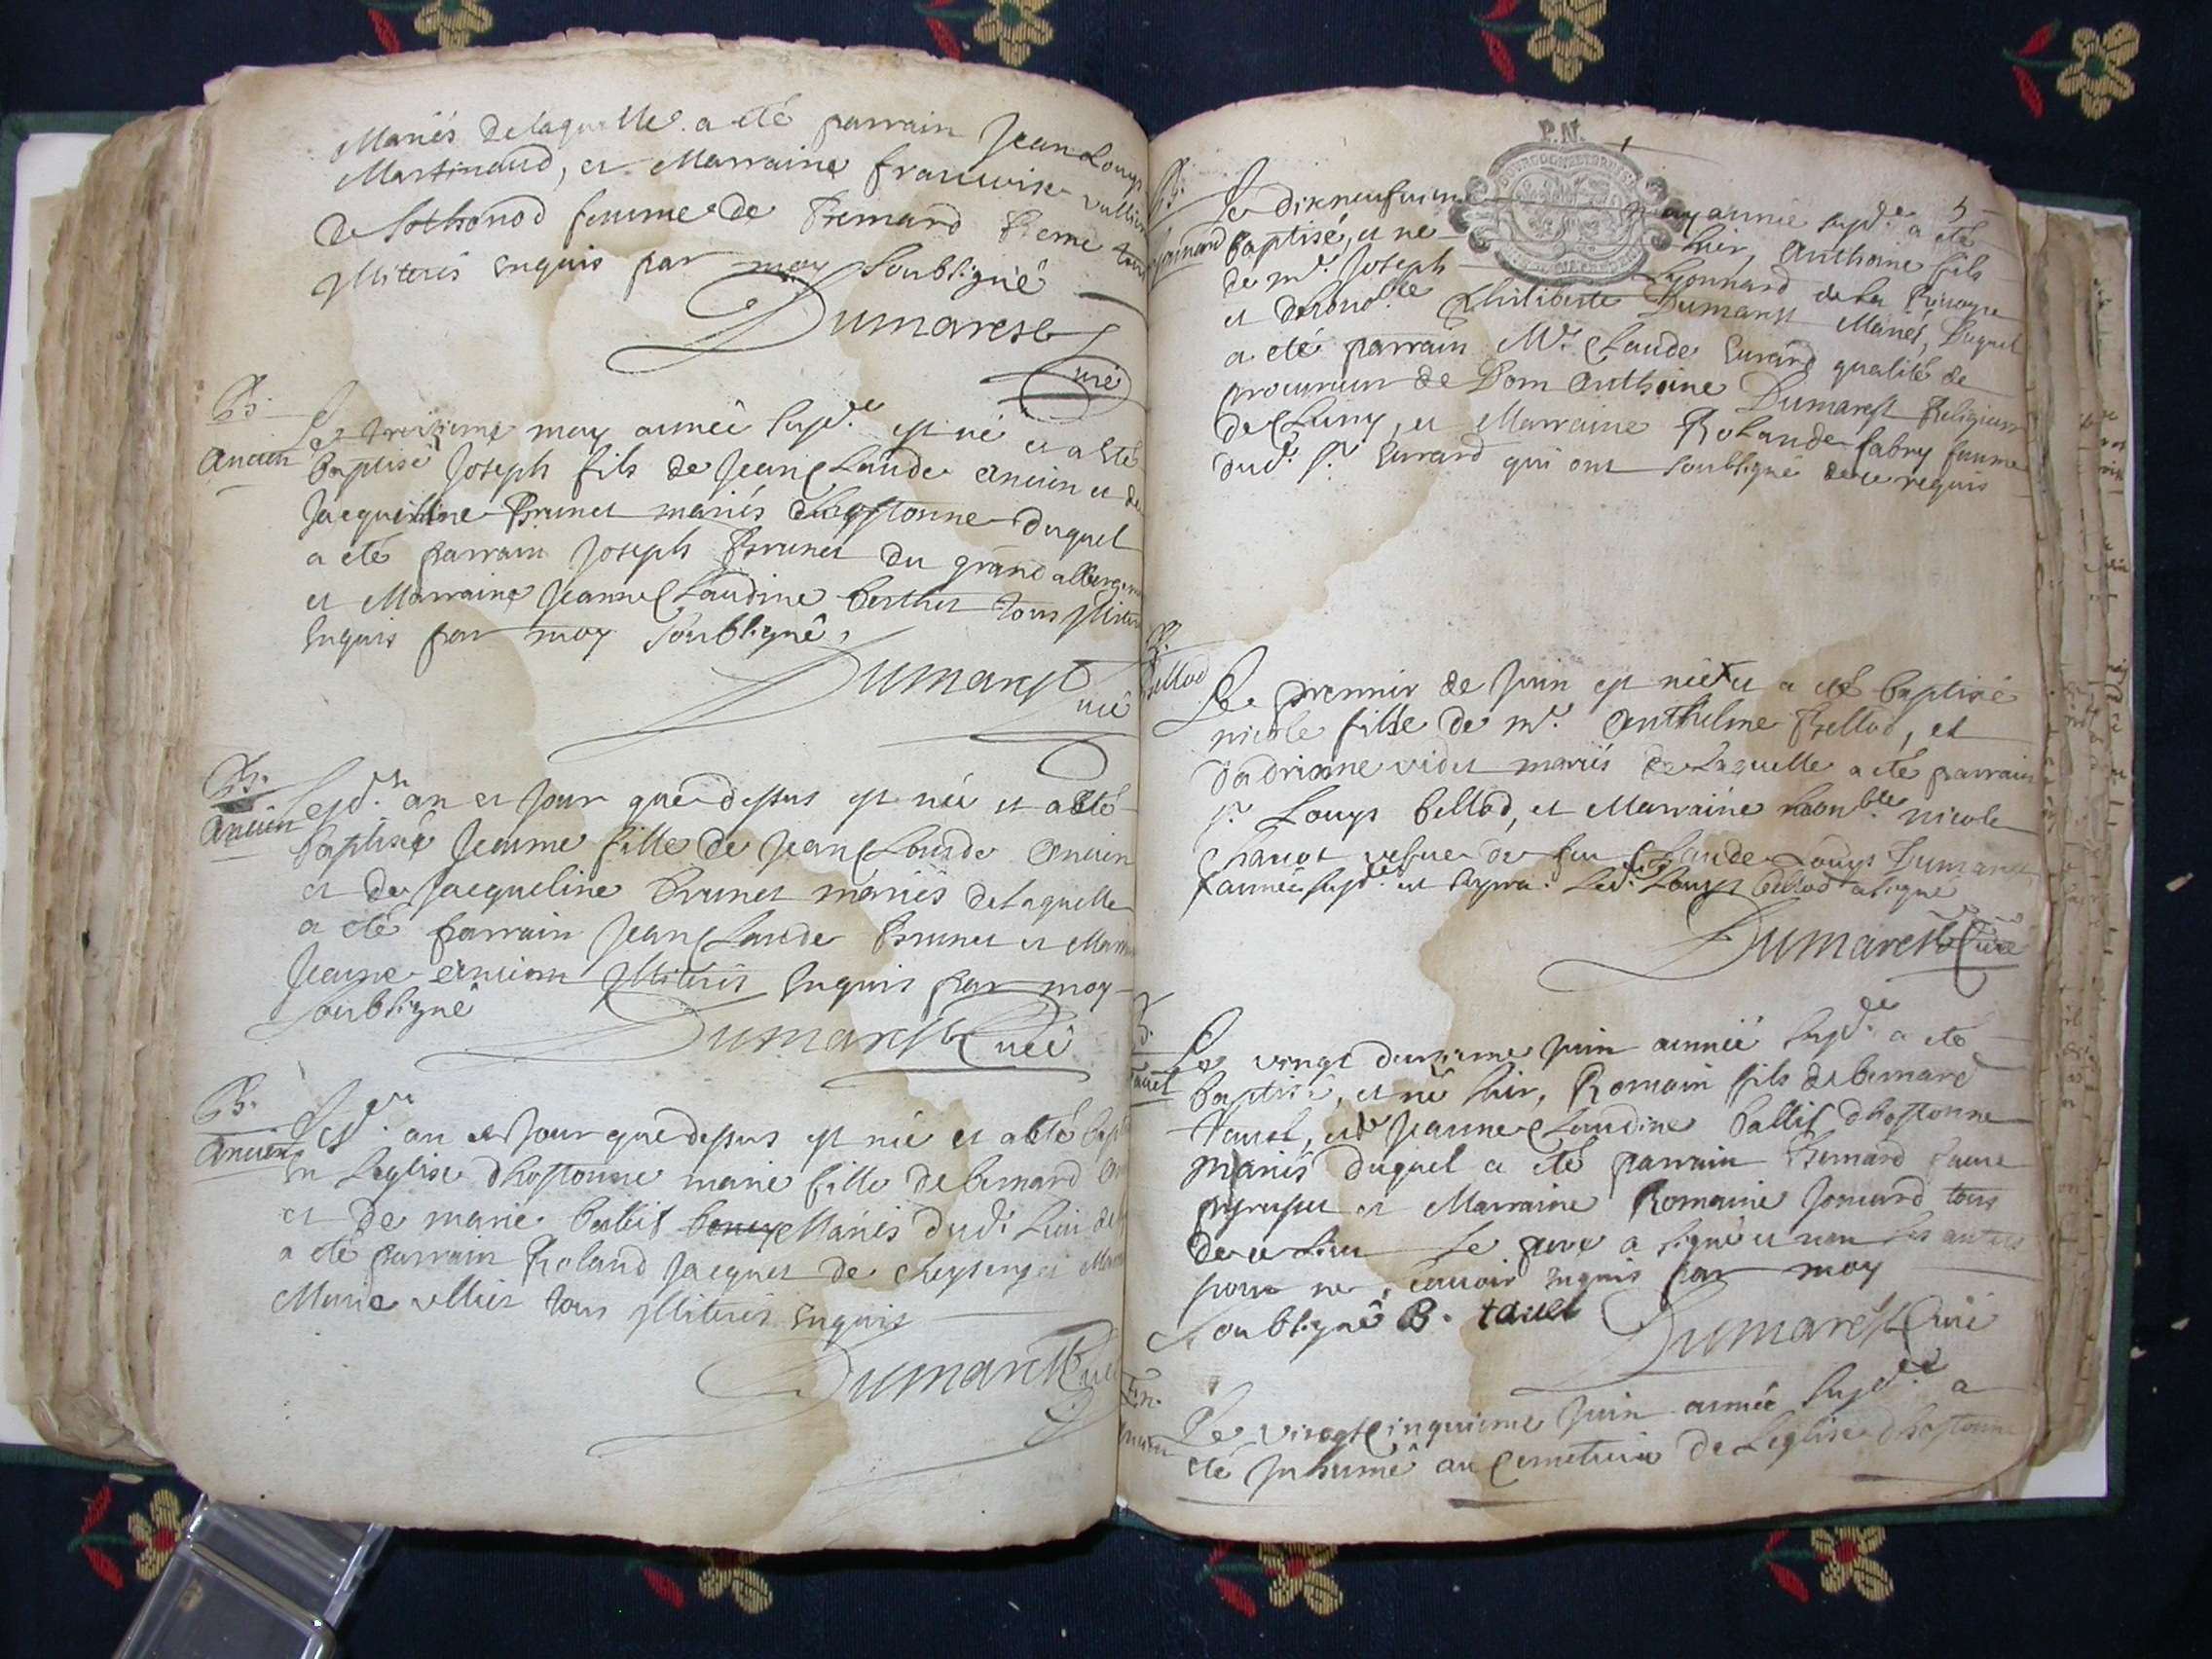 Mariés delaquelle a eté parrain Jean Louys
Martinand, et Marraine francoise
de Sothonod femme de Bernard
Illiterés Enquis par moy Soubsigné
Dumarest
Curé
B.
Ancien
Le treizieme may année susd.e est né et a Eté
Baptisé Joseph fils de Jean Claude Ancien et de
Jacqueline Brunet mariés dhostonne duquel
a eté parrain Joseph Brunet du grand
et Marraine Jeanne Claudine berthet tous
Enquis par moy Soubsigné,
Dumarest
Curé
B.
Ancien
Lesd.ts an et Jour que dessus est née et a Eté
baptisée Jeanne fille de Jean Claude Ancien
et de Jacqueline Brunet mariés delaquelle
a eté parrain Jean Claude Brunet et
Jeanne Ancien Illiterés Enquis par moy
Soubsigné
Dumarest Curé
B.
Ancien
Lesd.ts an et Jour que dessus est née et a eté
En Leglise dhostonne marie fille de bernard
et de marie Mariés dud.t Lieu
a eté parrain Roland Jacquet de
Marie tous Illiterés Enquis
Dumarest Curé
P.N.
5
B.
Le dixneufuieme may année susd.e a eté
Baptisé, et né hier, Anthoine fils
de m.r Joseph Guonnard de la
et dehono.ble Philiberte Dumarest Mariés, Duquel
a eté parrain M.r Claude Eurard qualité de
procureur de Dom Anthoine Dumarest Religieux
de Cluny, et Marraine Rolande fabry femme
dud.t S.r Eurard qui ont Soubsigné dece requis
B.
Bellod
Le premier de Juin est née et a eté baptisée
nicole fille de m.r Anthelme Bellod, et
dadrianne videt mariés de Laquelle a eté parrain
S.r Louys bellod, et Marraine hon.ble nicole
vefue de feu Claude Louys Dumarest
Lannée susd.e Led.t Louys bellod a signé
Dumarest Curé
B.
Tauel
Le vingt deuxieme Juin année susd.e a eté
baptisé, et né hier, Romain fils debernard
Tauel, et de Jeanne Claudine ballif dhostonne
Mariés duquel a eté parrain Bernard
et Marraine Romaine tous
dece Lieu Le pere a signé et non les autres
pour ne scauoir Enquis par moy
Soubsigné B. tauel Dumarest Curé
En.
Le vingtCinquieme Juin année susd.e a
eté Inhumé au Cemetiere de Leglise dhostonne